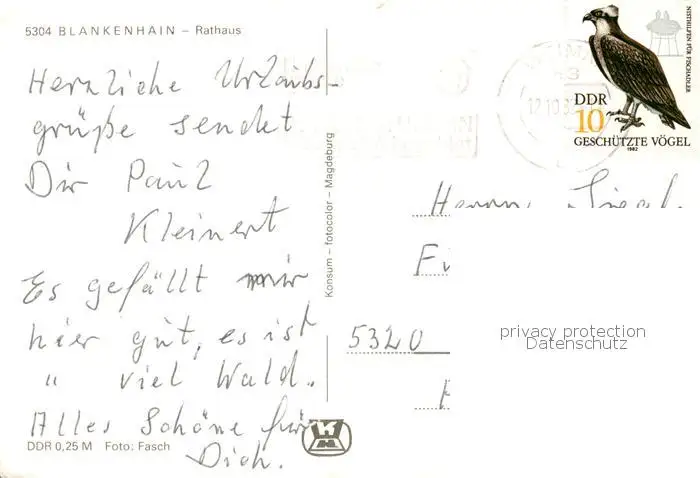 5304 BLANKENHAIN – Rathaus
Herzliche Urlaubs-
grüße sendet
Dir Paul
Kleinert
Es gefällt mir
hier gut, es ist
" viel Wald.
Alles Schöne für
Dich.
DDR 0,25 M Foto: Fasch
Konsum – fotocolor – Magdeburg
NISTHILFEN FÜR FISCHADLER
DDR
10
GESCHÜTZTE VÖGEL
1982
Herrn
5320
privacy protection
Datenschutz